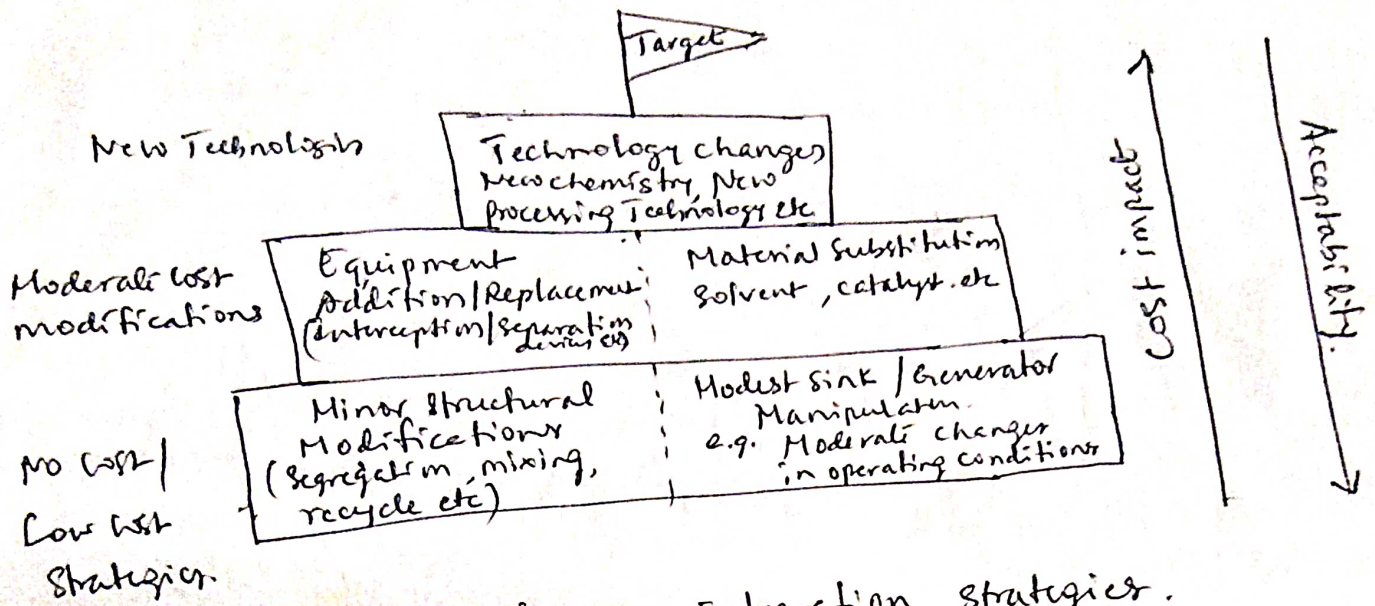 Target
New Technologies
Technology changes
New chemistry, New
processing Technology etc
Moderate cost
modifications
Equipment
Addition/Replacement
(interception/separation
devices etc)
Material Substitution
solvent, catalyst. etc
No cost/
Low cost
Strategies.
Minor Structural
Modifications
(segregation, mixing,
recycle etc)
Modest Sink / Generator
Manipulation.
e.g. Moderate changes
in operating conditions
Cost impact
Acceptability.
strategies.